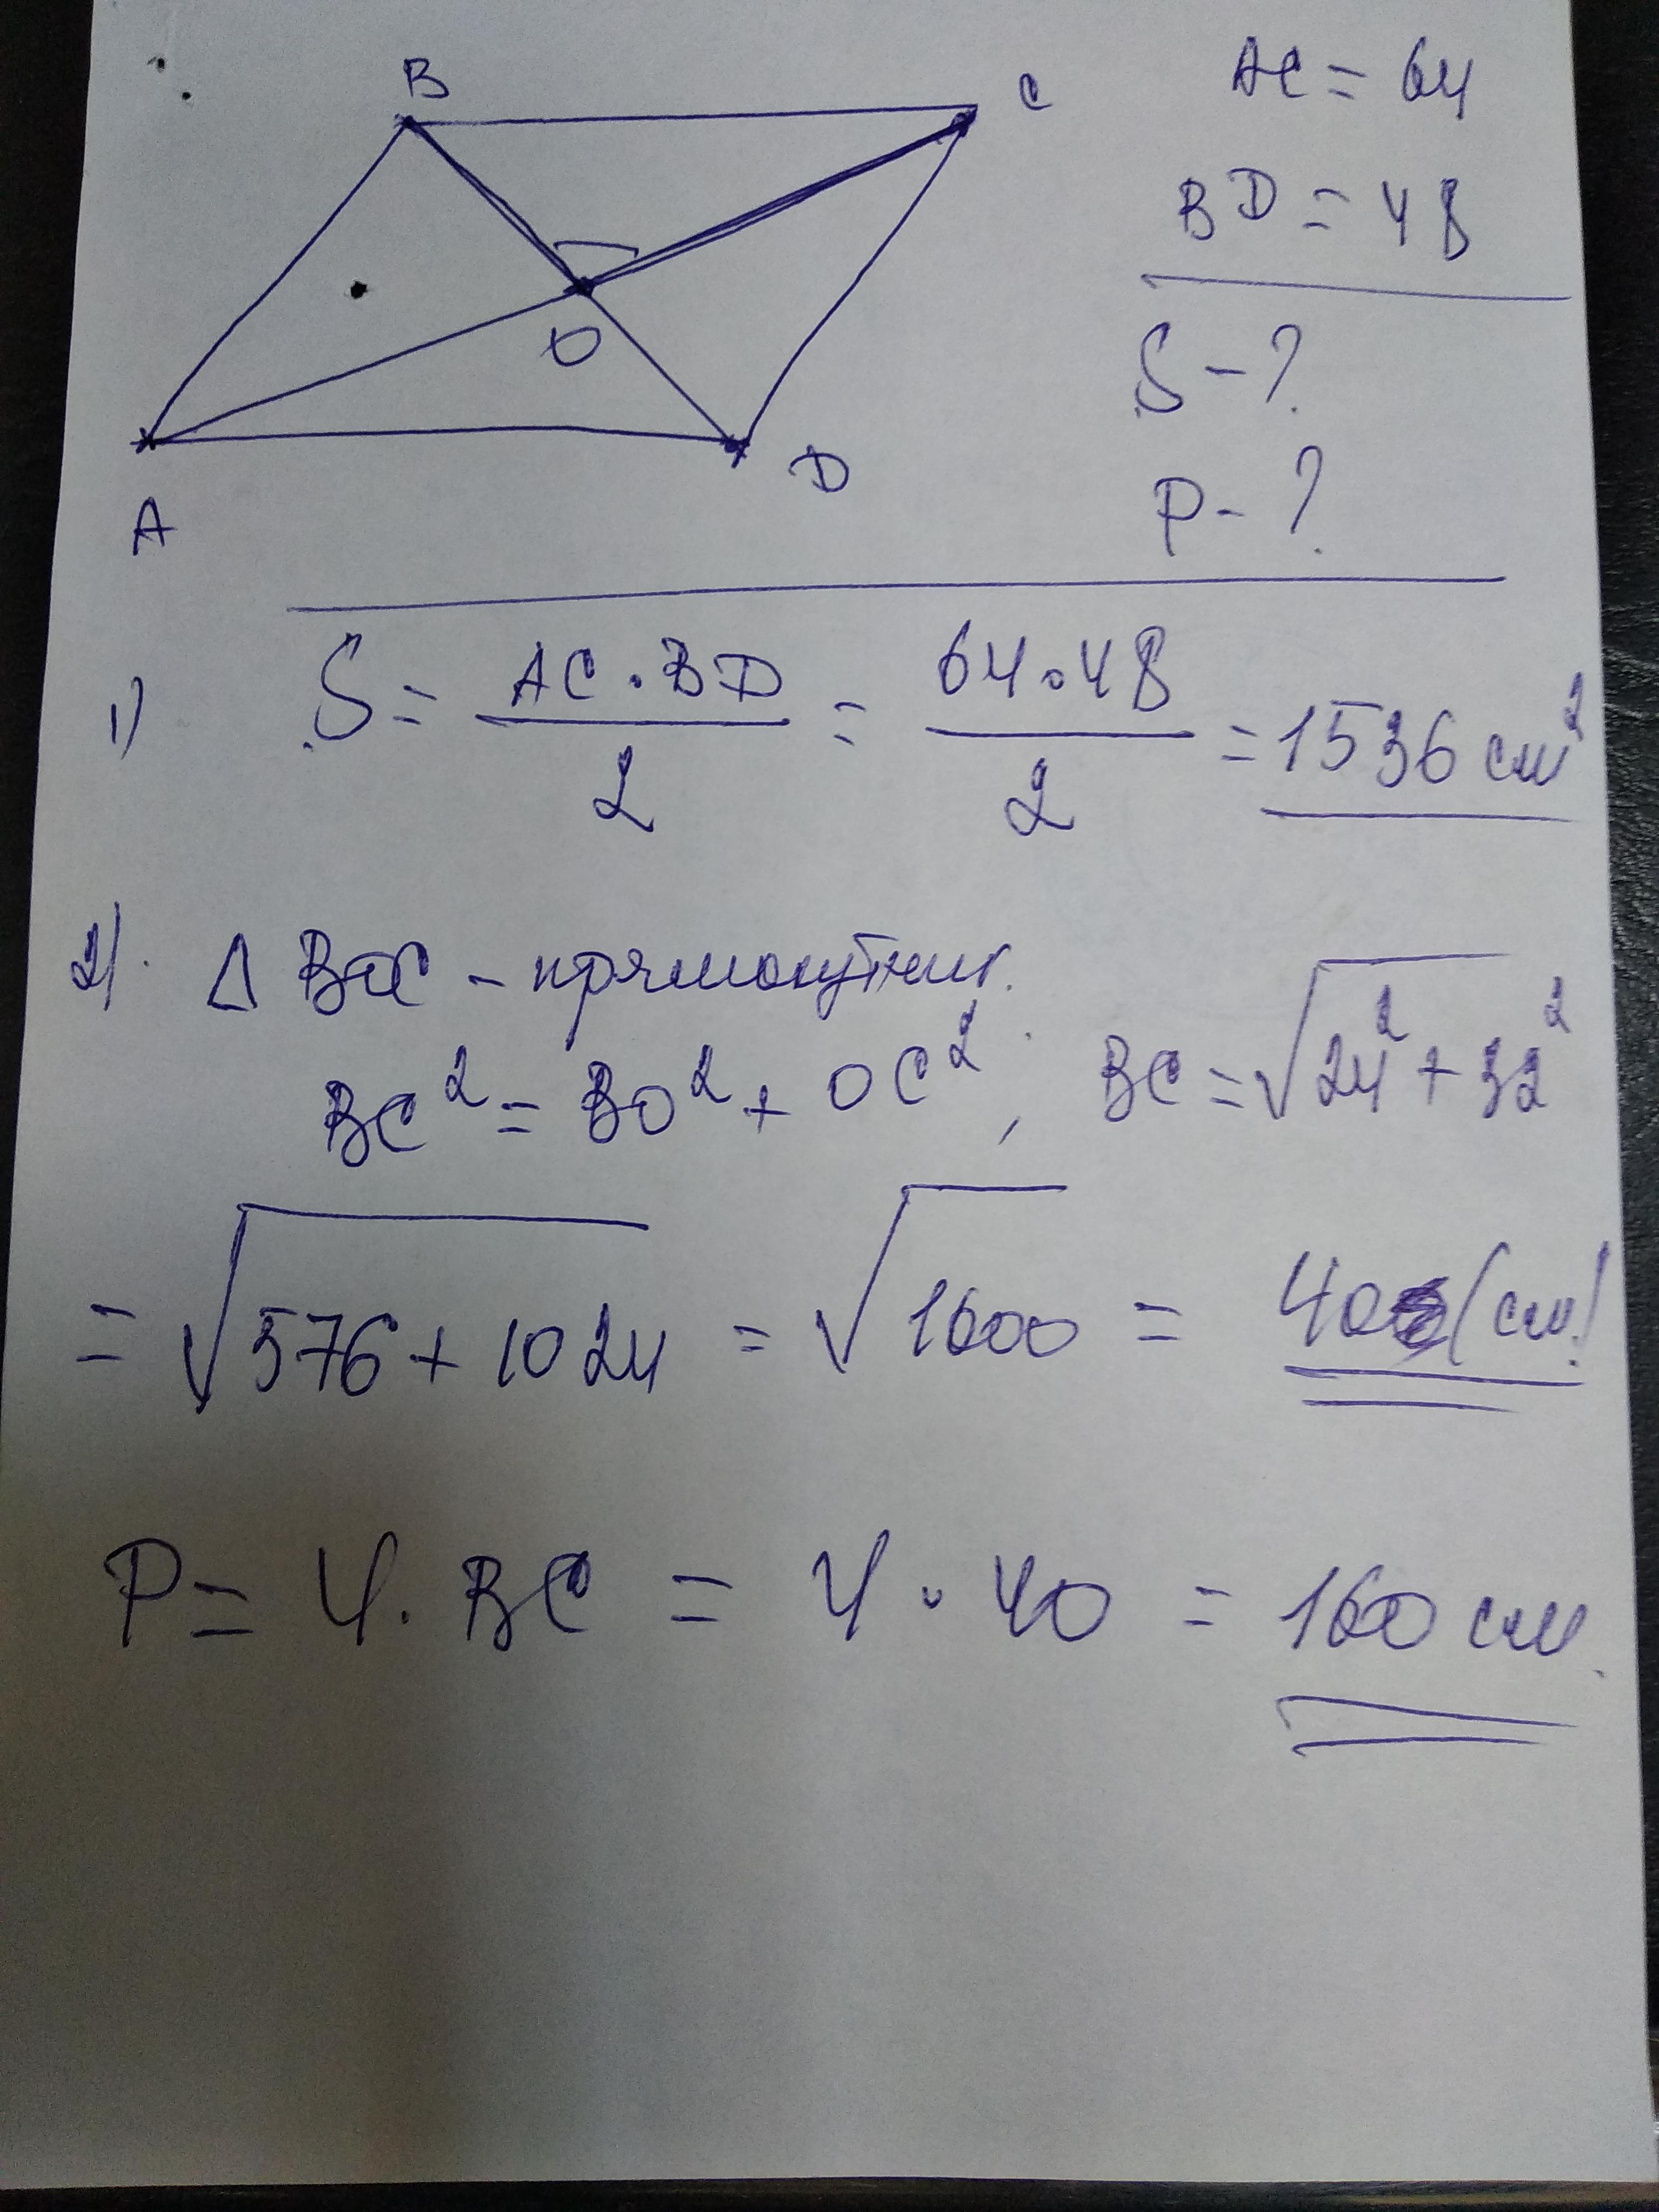 B
C
AC = 64
BD = 48
O
S - ?
A
D
P - ?
1) S = AC · BD / 2 = 64 · 48 / 2 = 1536 см²
2). Δ BOC - прямокутник.
BC² = BO² + OC² ; BC = √24² + 32²
= √576 + 1024 = √1600 = 40 (см)
P = 4 · BC = 4 · 40 = 160 см.